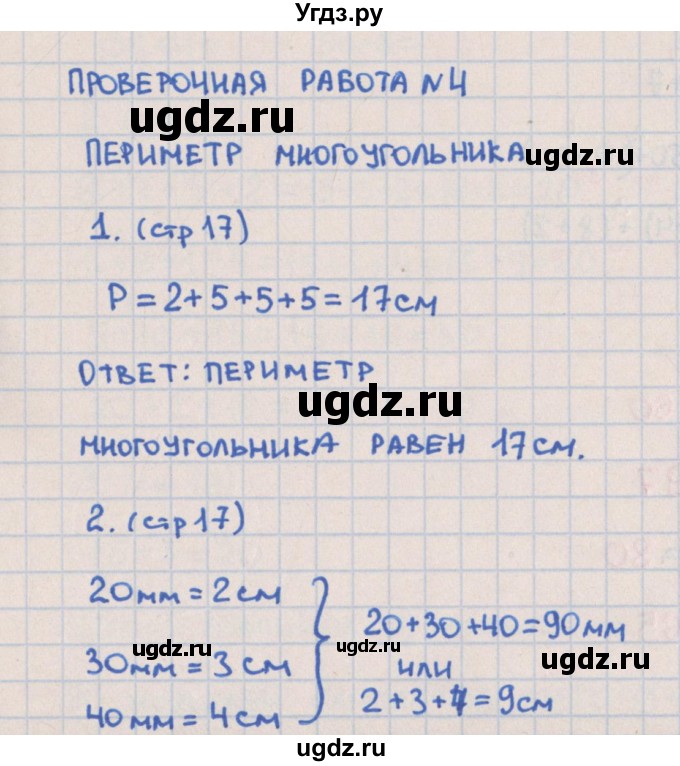 Угдз.ру
ПРОВЕРОЧНАЯ РАБОТА №4
ugdz.ru
ПЕРИМЕТР МНОГОУГОЛЬНИКА
ugdz.ru
1. (стр 17)
P = 2+5+5+5 = 17см
ОТВЕТ: ПЕРИМЕТР
ugdz.ru
МНОГОУГОЛЬНИКА РАВЕН 17см.
2. (стр 17)
ugdz.ru
20мм = 2см
20+30+40=90мм
ugdz.ru
ugdz.ru
ugdz.ru
30мм = 3см
или
40мм = 4см
2+3+4=9см
ugdz.ru